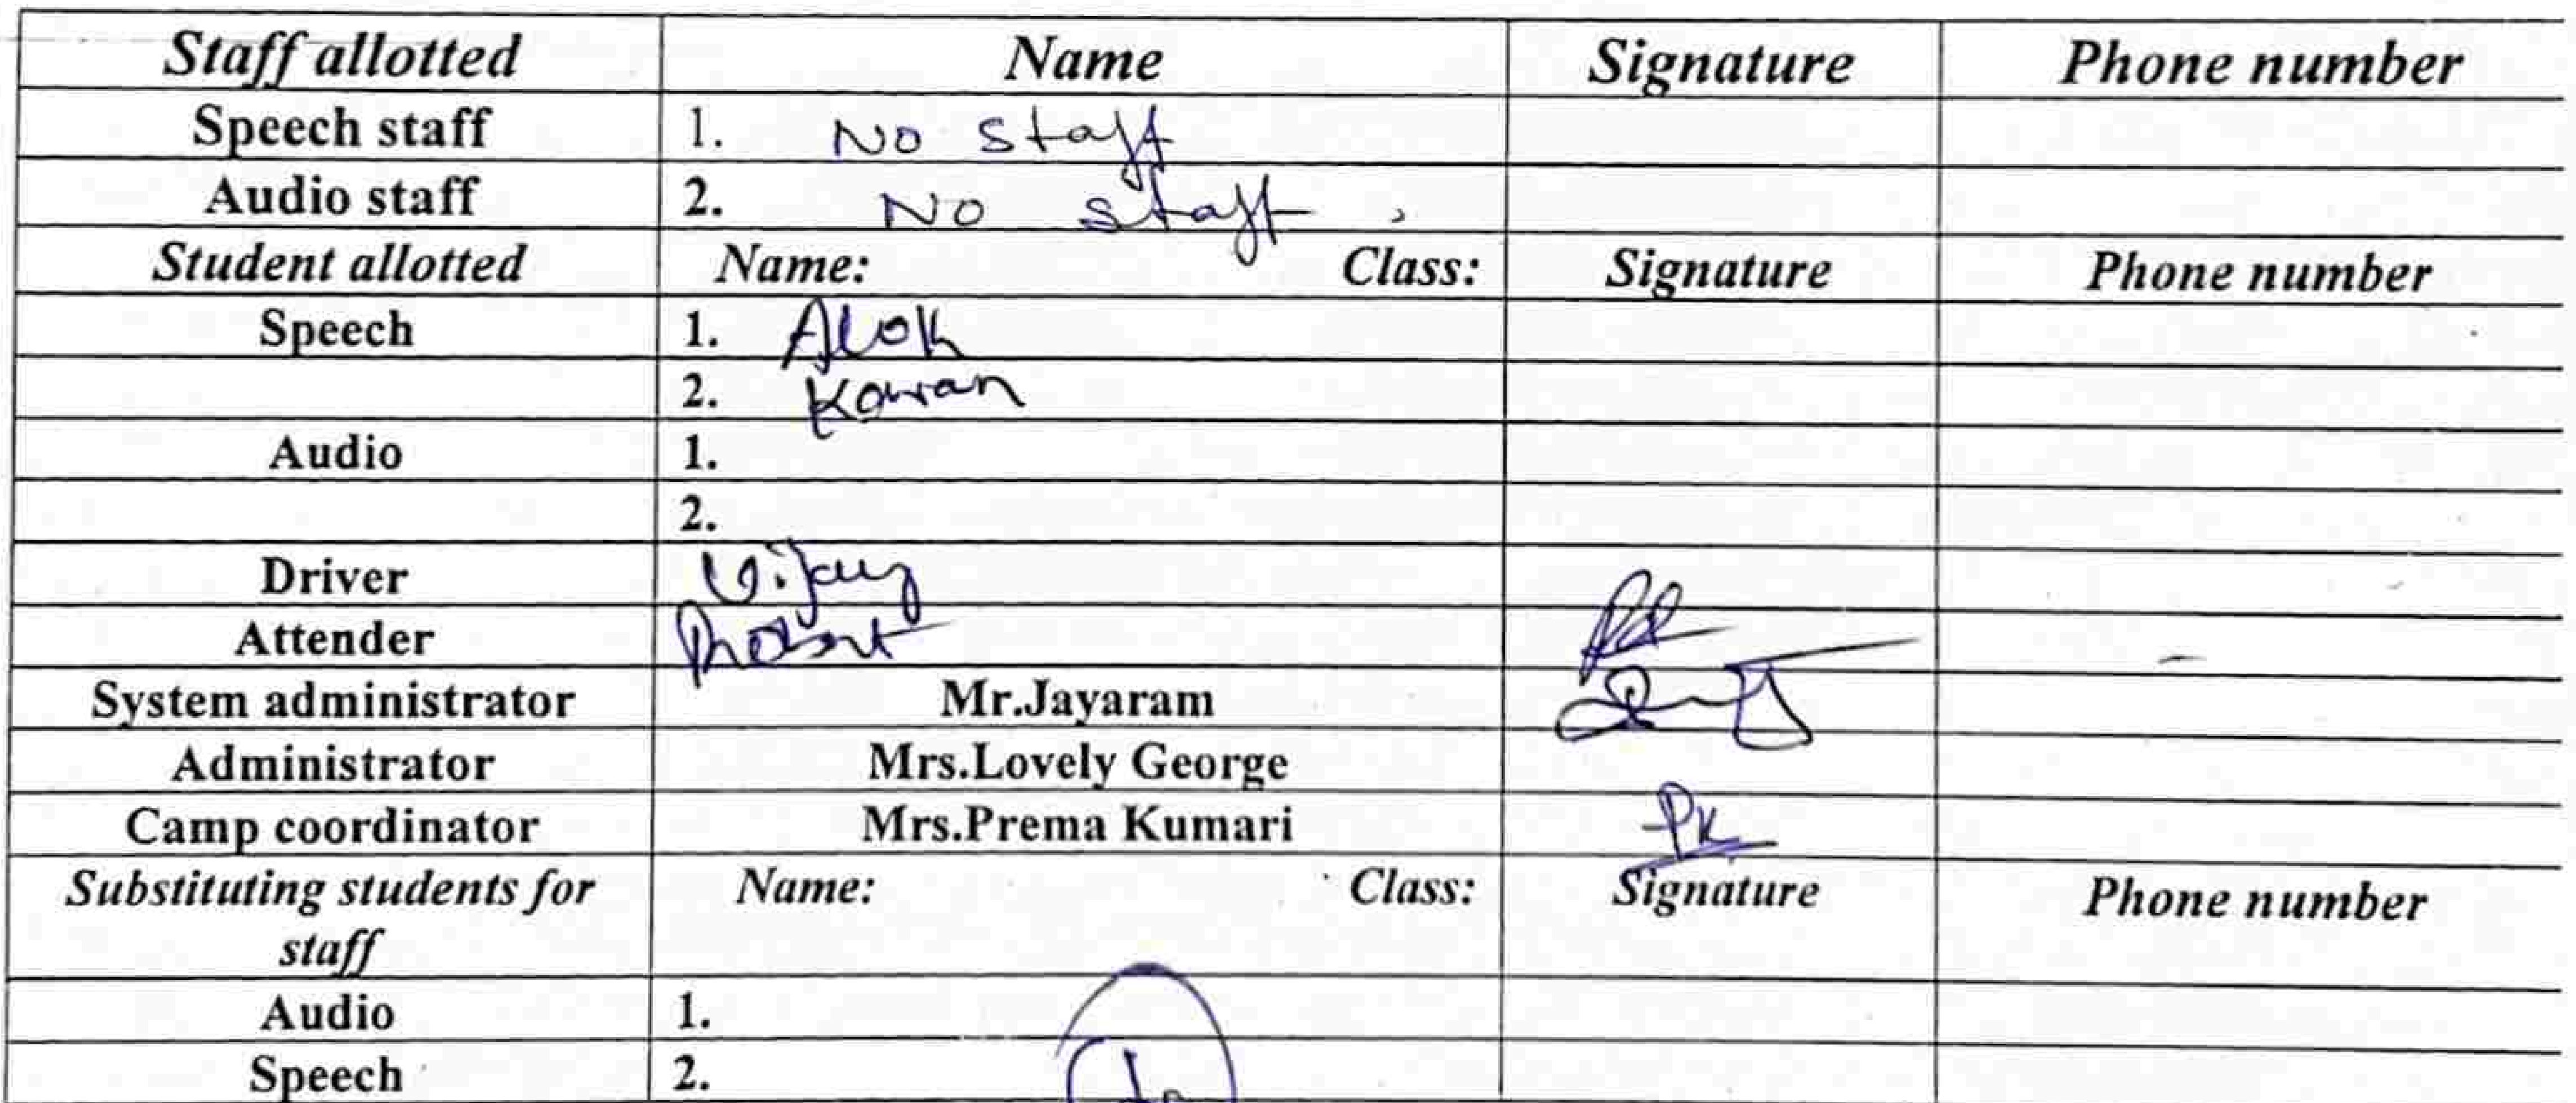 Staff allotted Name Signature Phone number
Speech staff 1. No staff
Audio staff 2. No staff
Student allotted Name: Class: Signature Phone number
Speech 1. Alok
2.
Audio 1.
2.
Driver Vijay
Attender
System administrator Mr.Jayaram
Administrator Mrs.Lovely George
Camp coordinator Mrs.Prema Kumari PK
Substituting students for Name: Class: Signature Phone number
staff
Audio 1.
Speech 2.